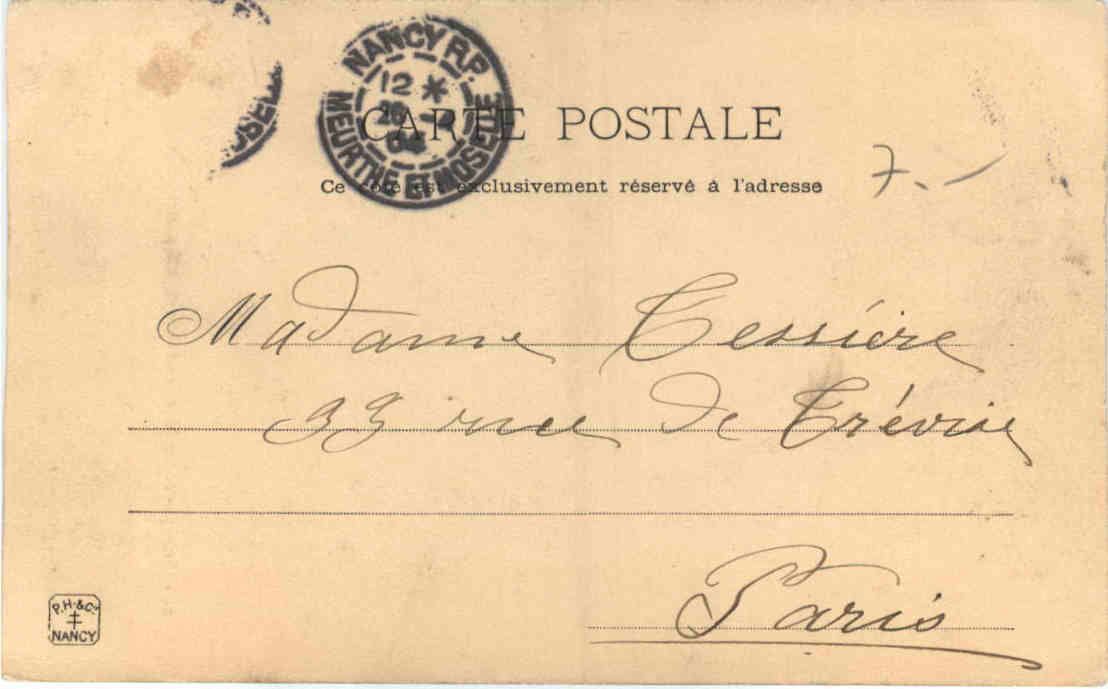 MOSEL
NANCY R.P.
12 *
04
MEURTHE ET MOSELLE
CARTE POSTALE
Ce côté est exclusivement réservé à l'adresse
7.-
Madame Tessière
33 rue de Trévise
Paris
P.H.&Cie
NANCY